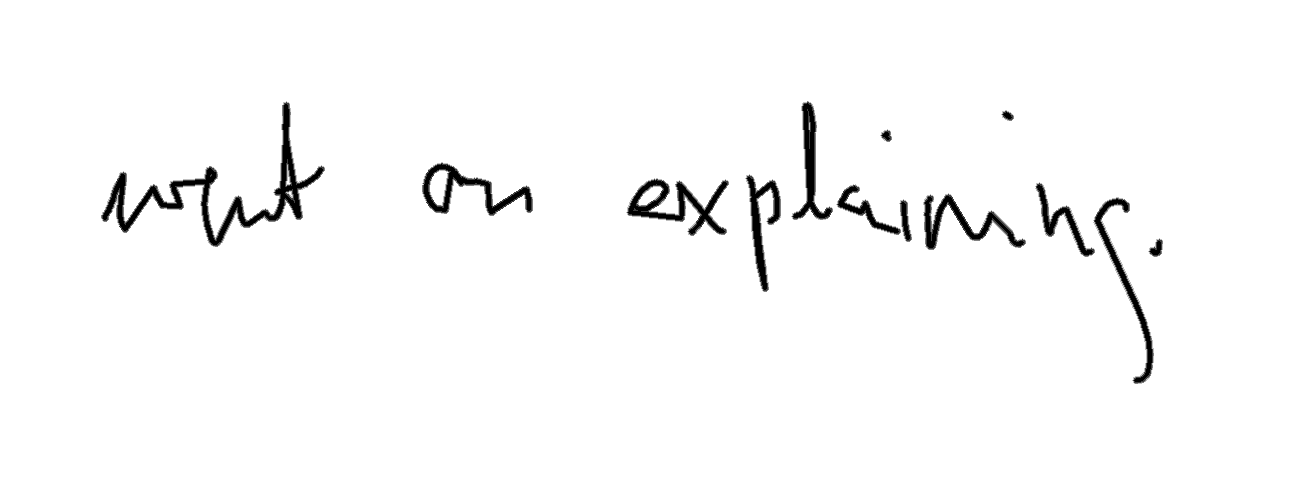 went on explaining.